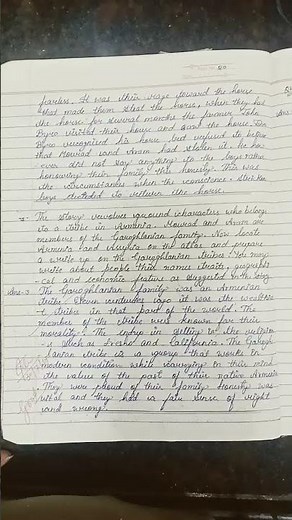 fearless. It was their rage toward the horse
that made them steal the horse, when they had
the horse for several months the farmer John
Byro visited their house and the horse John
Byro recognised his horse but refused to believe
that Mourad and Aram had stolen it. he how
ever did not say anything to the boys rather
honowing their family this honesty. This was
the circumstances when the conscience - striken
boys decided to return the horse.
The story revolves around characters who belongs
to a tribe in Armenia. Mourad and Aram are
members of the Garoghlanian family. Now locate
Armenia and Assyria on the atlas and prepare
a write up on the Garoghlanian tribes. You may
write about people their names traits, geographi
cal and economic feature as suggested in the story
Ans - The Garoghlanian family was an Armenian
tribe. Eleven centuries ago it was the wealthie
t tribes in that part of the world. The
member of the tribe well known for their
morality. The story is setting in the
such as Fresno and California. The Garogh
lanian tribe is a group that works in
modern condition while carrying in their mind
the value of the past of their native Armenia
They were proud of their family Honesty was
vital and they had a fair sense of right
and wrong.